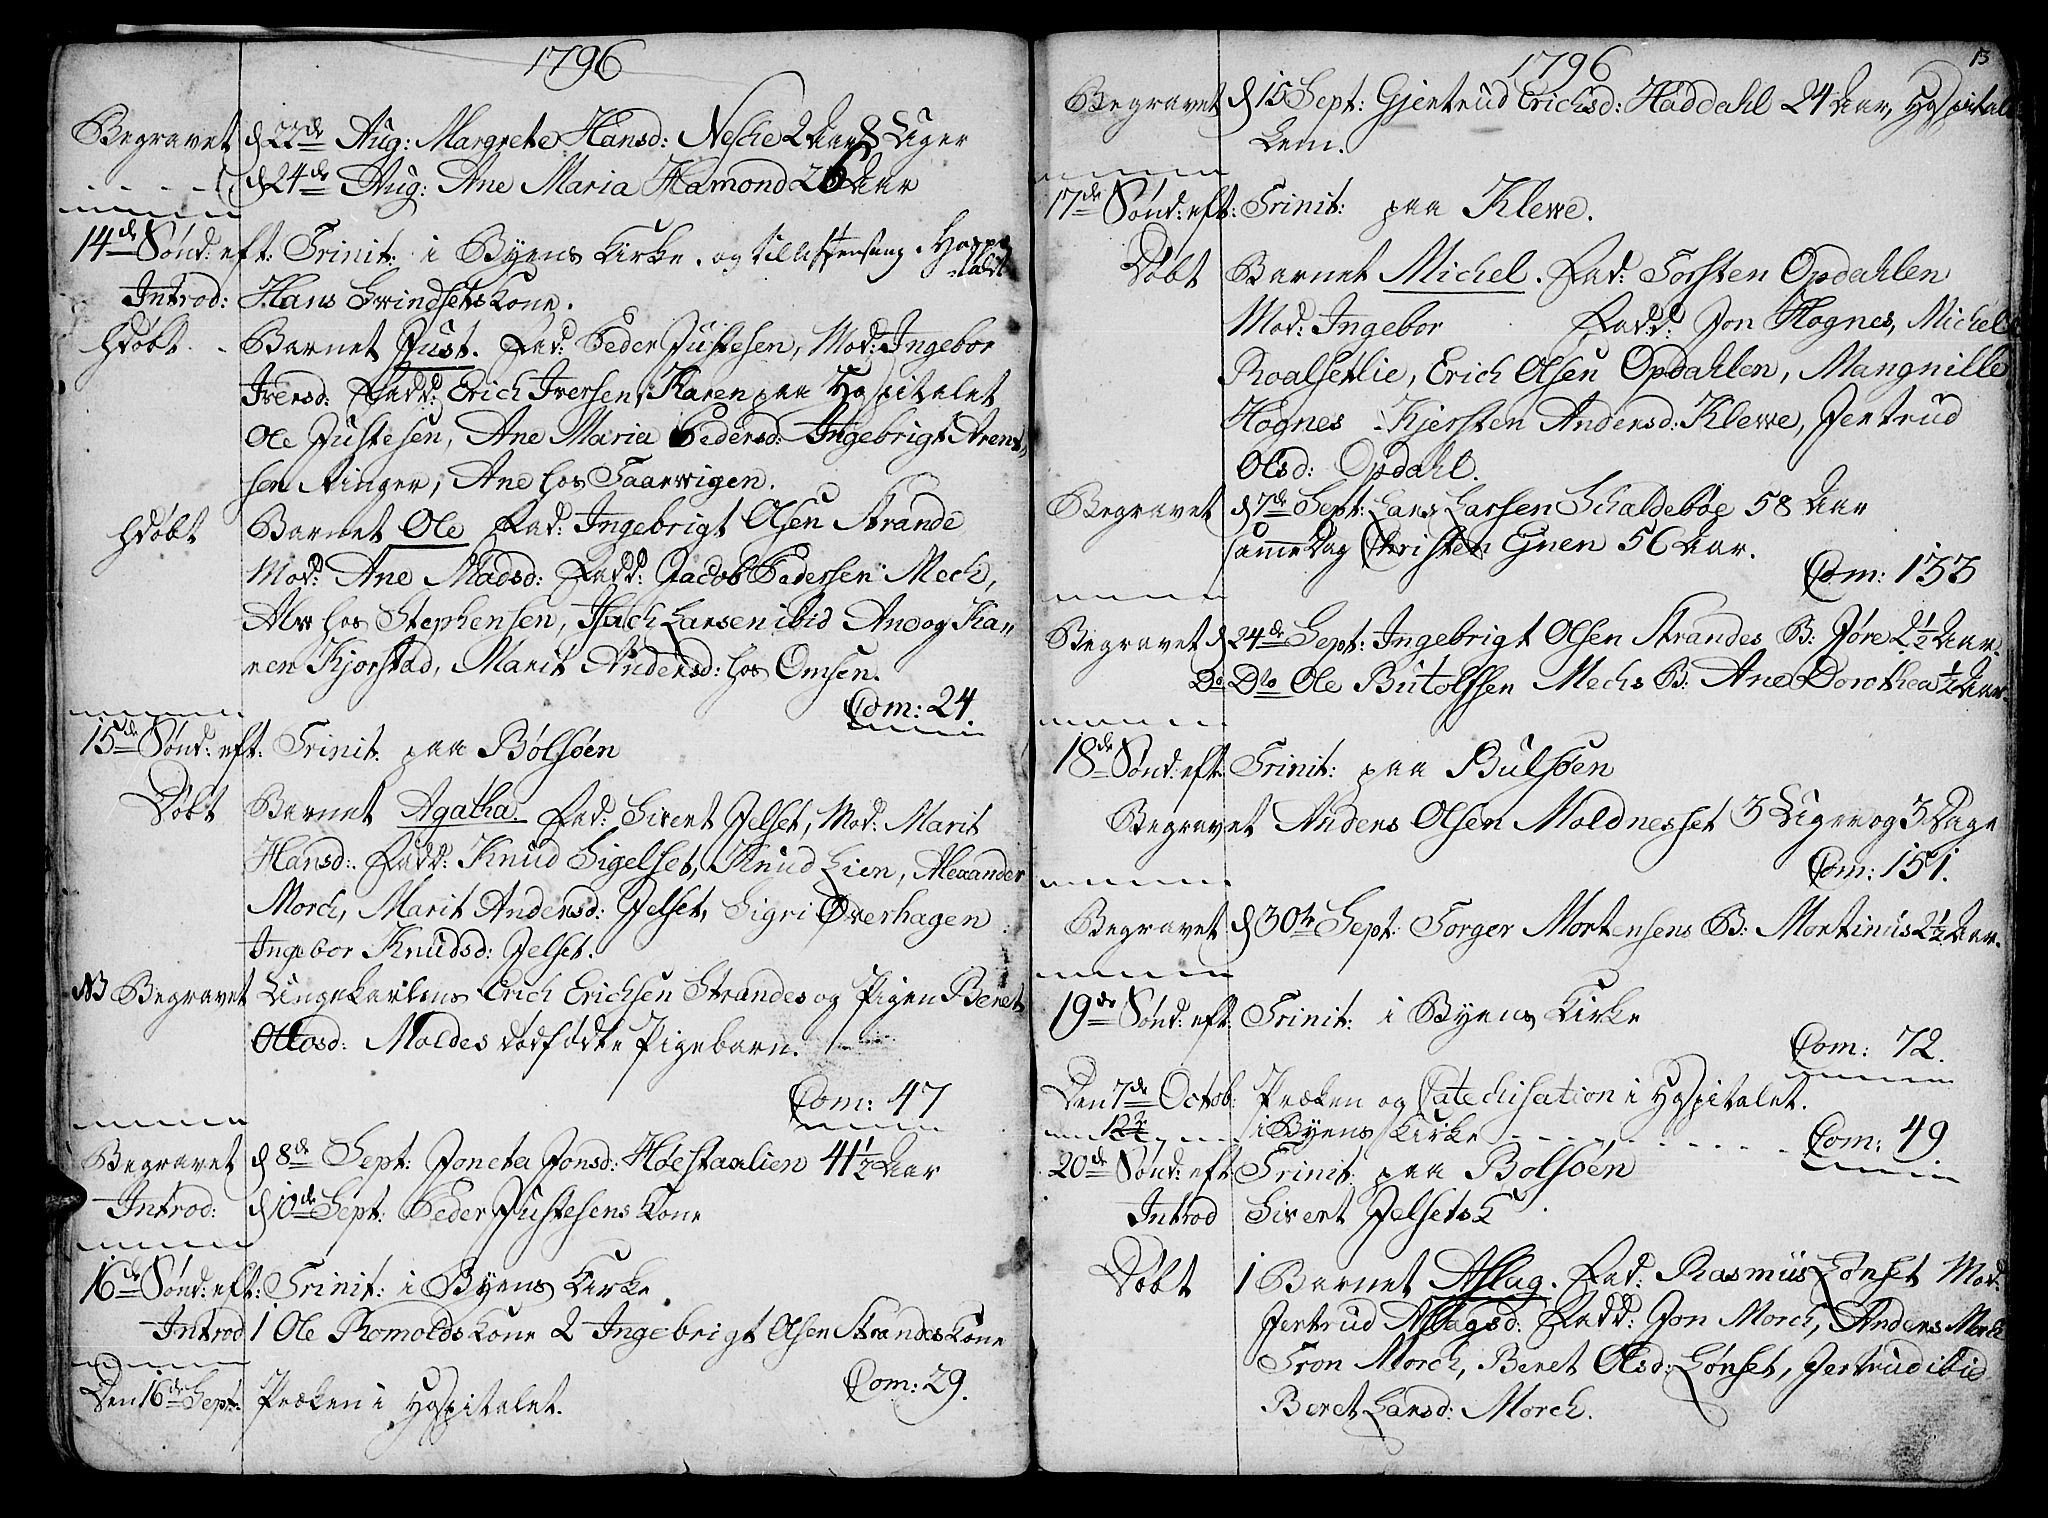 1796
Begravet d 22de Aug: Margrete Hansd: Nesche 2 Aar 8 Uger
d 24de Aug: Ane Maria Hamond 26 Aar
14de Sønd: eft: Trinit: i Byens Kirke. og till Aftensang Hospitalet
Introd: Hans Svindsets Kone.
Hdøbt Barnet Just. Fad: Peder Justesen, Mod: Ingebor
Iversd: Fadd: Erich Iversen, Karen paa Hospitalet
Ole Justesen, Ane Maria Pedersd: Ingebrigt Arent-
sen Ringer, Ane hos Faarwigen.
Hdøbt Barnet Ole Fad: Ingebrigt Olsen Strande
Mod: Ane Madsd: Fadd: Jacob Pedersen Mech,
Alw hos Stephensen, Isach Larsen ibid Ane og Ka-
ren Kjorstad, Marit Andersd: hos Omsen.
Com: 24.
15de Sønd: eft: Trinit: paa Bolsøen
Døbt Barnet Agatha Fad: Sivert Jelset, Mod: Marit
Hansd: Fadd: Knud Sigelset, Knud Lien, Alexander
Morch, Marit Andersd: Jelset, Sigri Øverhagen
Ingebor Knudsd: Jelset.
NB Begravet Ungekarlens Erich Erichsen Strandes og Pigen Beret
Ottosd: Moldes dødfødte Pigebarn.
Com: 47
Begravet d 8de Sept: Joneta Jonsd: Hoestaxlien 41 1/2 Aar
Introd: d 10de Sept: Peder Justesens Kone
16de Sønd: eft: Trinit: i Byens Kirke.
Introd 1 Ole Romolds Kone 2 Ingebrigt Olsen Strandes Kone
Com: 29.
Den 16de Sept: Præken i Hospitalet.
1796
13
Begravet d 15 Sept: Gjertrud Erichsd: Haddahl 24 Aar, Hospitals
Lem.
17de Sønd: eft: Trinit: paa Klewe.
Døbt Barnet Michel. Fad: Torsten Opdahlen
Mod: Ingebor Fadd: Jon Hognes, Michel
Roalsetlie, Erich Olsen Opdahlen, Mangnille
Hognes Kjersten Andersd: Klewe, Jertrud
Olsd: Opdahl.
Begravet d 7de Sept: Lars Larsen Schaldebøe 58 Aar
samme Dag Christen Gnen 56 Aar.
Com: 133
Begravet d 24de Sept: Ingebrigt Olsen Strandes B: Jøre 2 1/2 Aar.
Do Dto Ole Butolfsen Mechs B: Ane Dorothea 1/2 Aar.
18de Sønd: eft: Trinit: paa Bulsøen
Begravet Anders Olsen Moldnesset 3 Uger og 3 Dage
Com: 151.
Begravet d 30te Sept: Torger Mortensens B: Mortinus 2 1/2 Aar.
19de Sønd: eft: Trinit: i Byens Kirke
Com: 72.
Den 7de Octob: Præken og Catechisation i Hospitalet.
i Byens Kirke Com: 49.
20de Sønd: eft Trinit: paa Bolsøen
Introd Sivert Jelsets K
Døbt 1 Barnet Aslag. Fad: Rasmus Lønset Mod:
Jertrud Aslagsd: Fadd: Jon Morch, Anders Morch
Tron Morch, Beret Olsd: Lønset, Jertrud ibid
Beret Larsd: Morch.